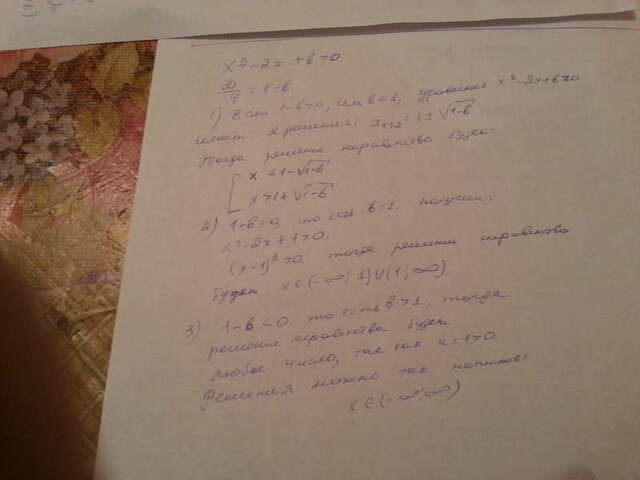 x² - 2x + b > 0
D/4 = 1 - b
1) Если 1-b>0, b<1, уравнение x²-2x+b=0
имеет 2 решения: x₁,₂ = 1 ± √1-b
Тогда решение неравенства будет:
[ x < 1 - √1-b
x > 1 + √1-b
2) 1-b=0, то есть b=1. получим:
x² - 2x + 1 > 0.
(x-1)² > 0. тогда решение неравенства
будет: x ∈ (-∞; 1) ∪ (1; ∞)
3) 1-b < 0. то есть b > 1, тогда
решение неравенства будет
любое число, так как a = 1 > 0.
Решения можно так написать:
x ∈ (-∞; ∞)